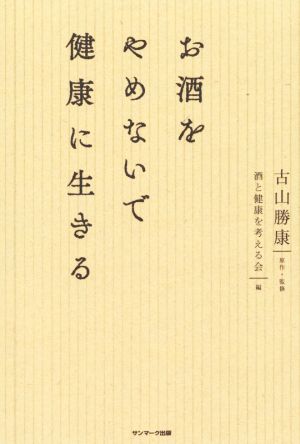 お酒を
やめないで
健康に生きる
古山勝康 原作・監修
酒と健康を考える会 編
サンマーク出版